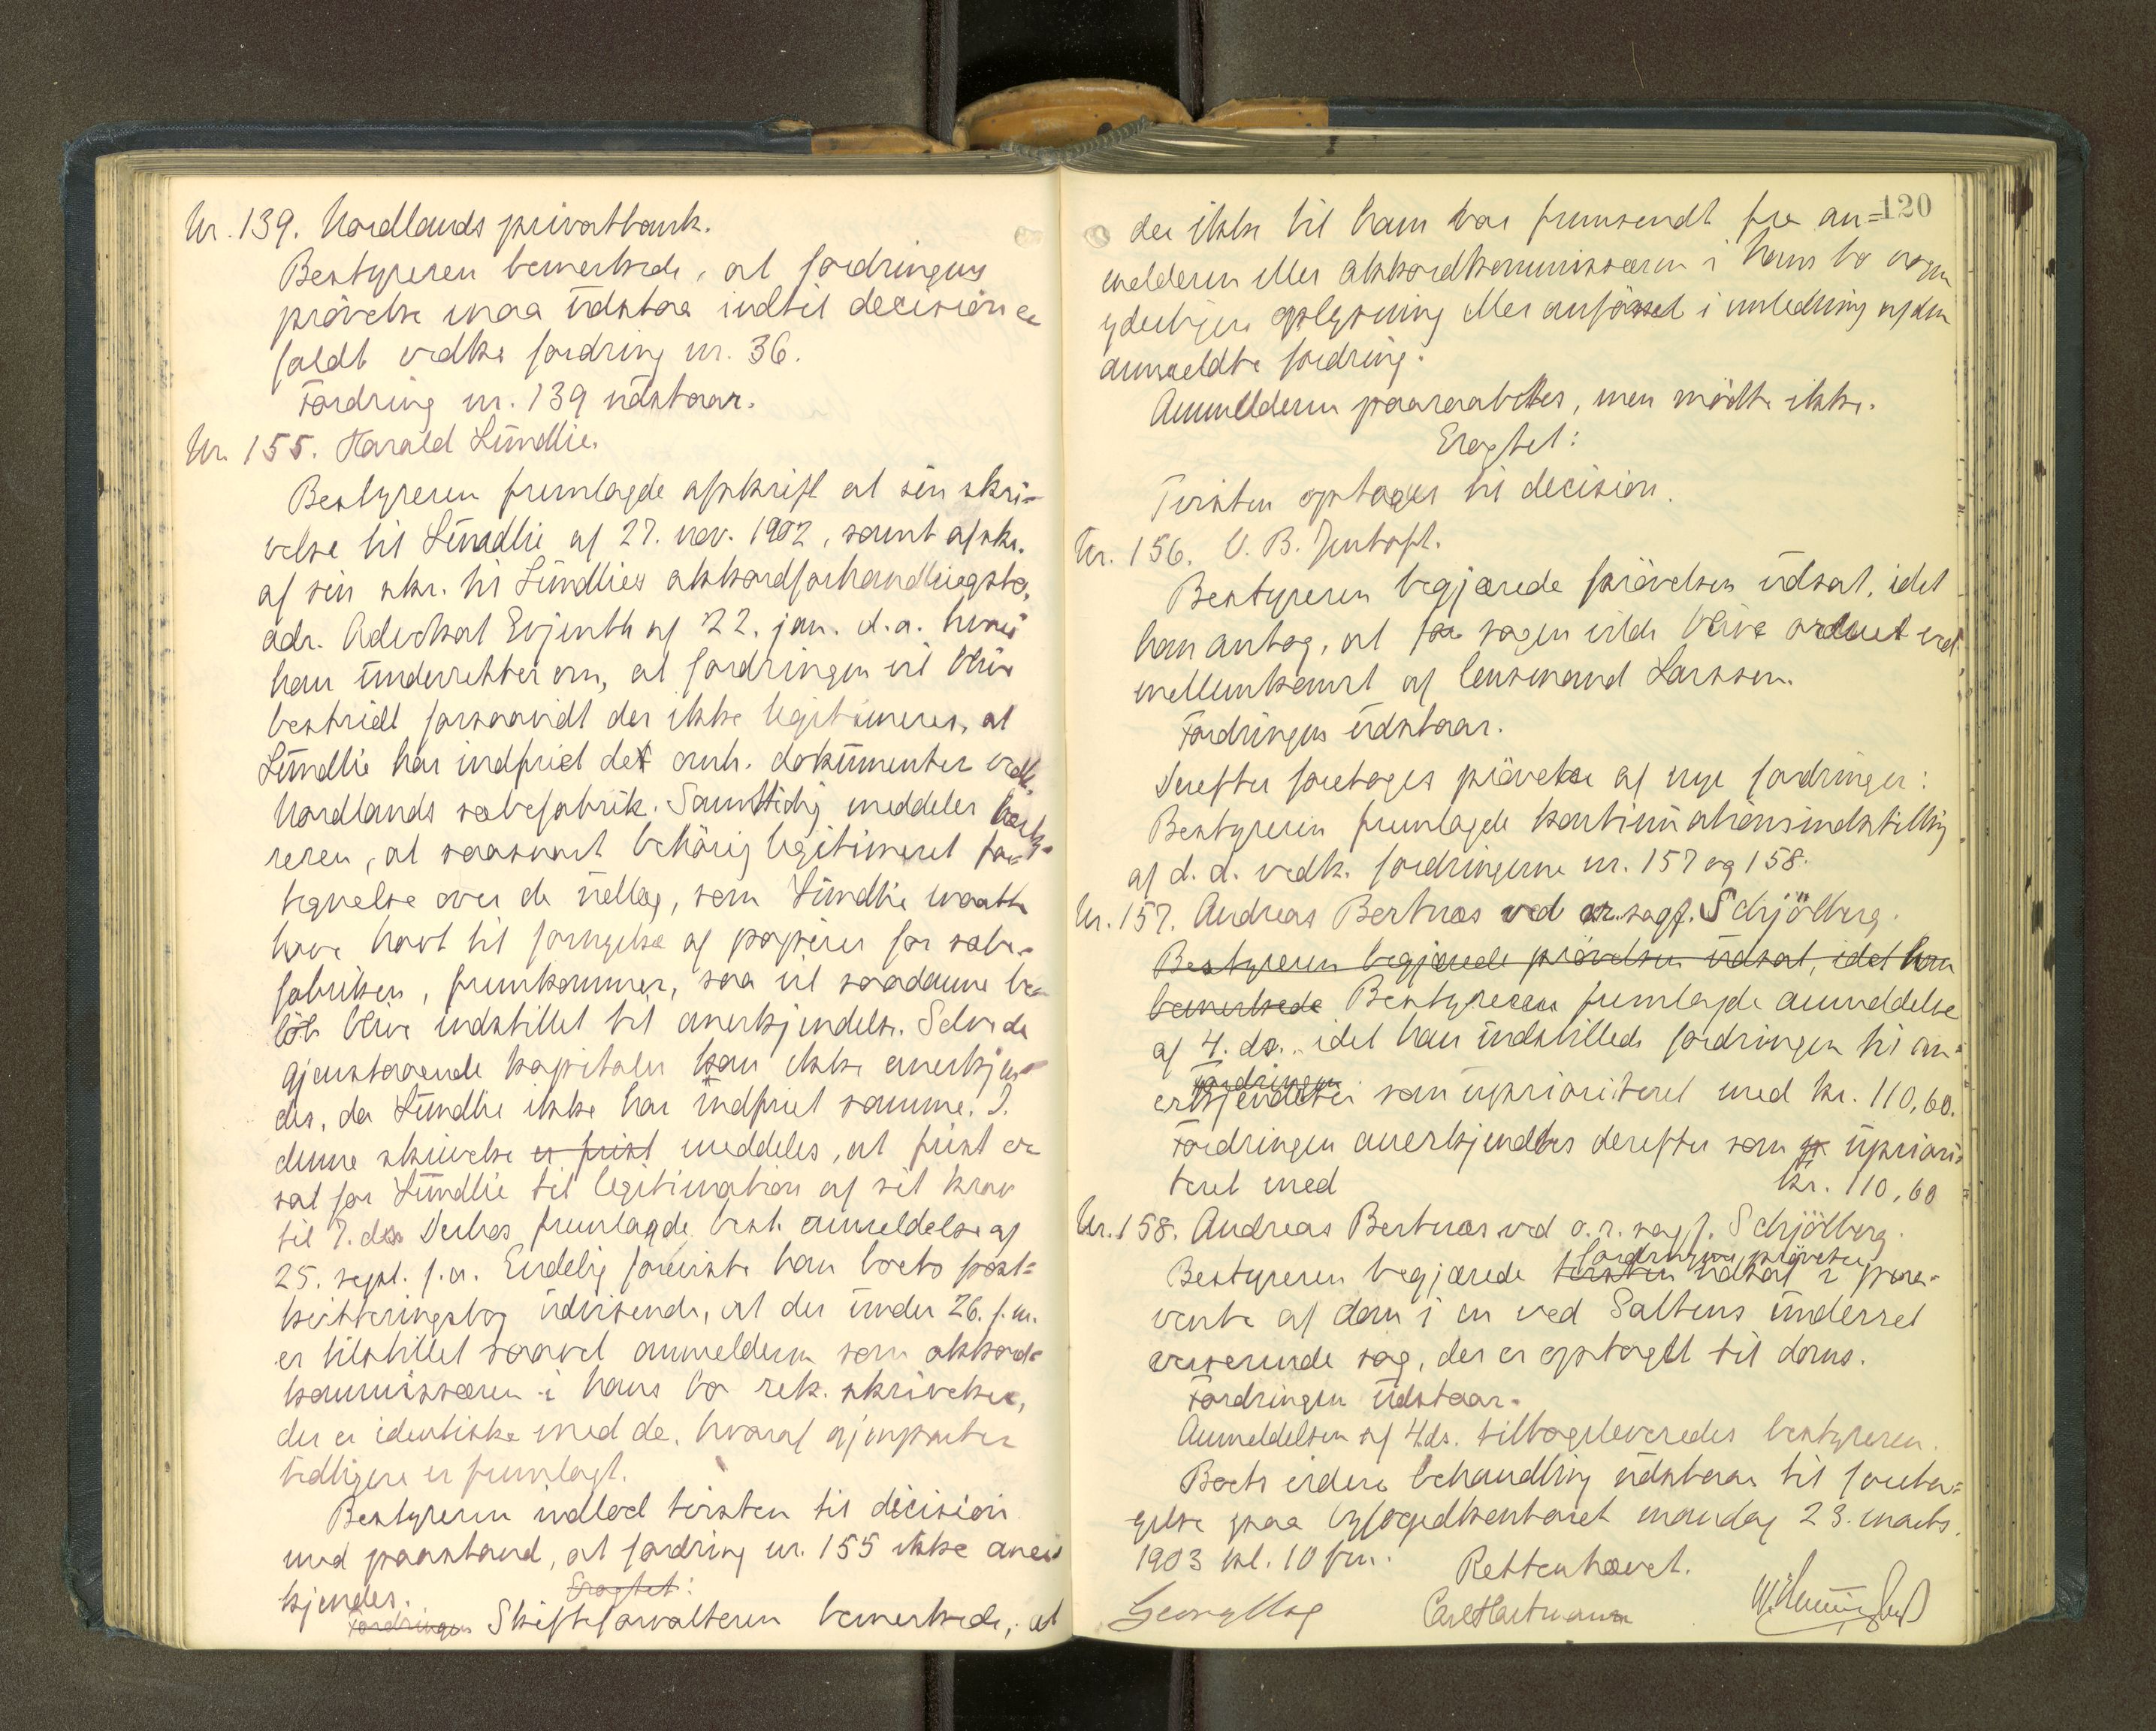 Nr. 139. Nordlands privatbank.
Bestyreren bemerkede, at fordringens
prövelse maa udstaa indtil decision er
faldt vedk. fordring nr. 36.
Fordring nr. 139 udstaar.
Nr. 155. Harald Lundlie.
Bestyreren fremlagde afskrift at sin skri-
velse til Lundlie af 27. nov. 1902, samt afskr.
af sin skr. til Lundlies akkordforhandlingsbo,
adr. Advokat Evjenth af 22. jan. d.a. hvori
han underretter om, at fordringen vil blive
bestridt forsaavidt der ikke legitimeres, at
Lundlie har indfriet det omh. dokumenter vedk.
Nordlands sæbefabrik. Samtidig meddeler besty-
reren, at saasnart behörig legitimeret for-
tegnelse over de udlæg, som Lundlie maatte
have havt til fornyelse af papirer for sæbe-
fabriken, fremkommer, saa vil saadanne be-
löb blive indstillet til anerkjendelse. Selve de
gjenstaaende kapitaler kan ikke anerkjen-
des, da Lundlie ikke har indfriet samme. I
denne skrivelse er frist meddeles, at frist er
sat for Lundlie til legitimation af sit krav
til 7. ds. Derhos fremlagde best. anmeldelse af
25. sept. f.a. Endelig foreviste han boets post-
kvitteringsbog udvisende, at der under 26. f.m.
er tilstillet saavel anmelderen som akkord-
kommissæren i hans bo rek. skrivelser,
der er identiske med de, hvoraf gjenparter
tidligere er fremlagt.
Bestyreren indlod tvisten til decision
med paastand, at fordring nr. 155 ikke aner-
kjendes.
Eragtet:
Fordringen Skifteforvalteren bemerkede, at
120
der ikke til ham var fremsendt fra an=
melderen eller akkordkommissæren i hans bo nogen
yderligere oplysning eller anförsel i anledning af den
anmeldte fordring.
Anmelderen paaraabtes, men mödte ikke.
Eragtet:
Tvisten optages til decision.
Nr. 156. C. B. Jentoft.
Bestyreren begjærede prövelsen udsat, idet
han antog, at for sagen vilde blive ordnet ved
mellemkomst af lensmand Larssen.
Fordringen udstaar.
Derefter foretoges prövelse af nye fordringer:
Bestyreren fremlagde kontinuationsindstilling
af d. d. vedk. fordringerne nr. 157 og 158.
Nr. 157. Andreas Bertnæs ved o.r.sagf. Schjölberg.
Bestyreren begjærede prövelsen udsat, idet han
bemerkede Bestyreren fremlagde anmeldelse
af 4. ds. idet han indstillede fordringen til an-
fordringen
erkjendelse som uprioriteret med kr. 110,60.
Fordringen anerkjendtes derefter som upriori-
teret med kr. 110,60
Nr. 158. Andreas Bertnæs ved o.r. sagf. Schjölberg.
fordringens prövelse
Bestyreren begjærede tvisten udsat i paa-
vente af dom i en ved Saltens underret
verserende sag, der er optaget til doms.
Fordringen udstaar.
Anmeldelsen af 4.ds. tilbageleveredes bestyreren.
Boets videre behandling udstaar til foreta=
gelse paa byfogedkontoret mandag 23. marts
1903 kl. 10 fm.
Retten hævet.
Carl Hartmann